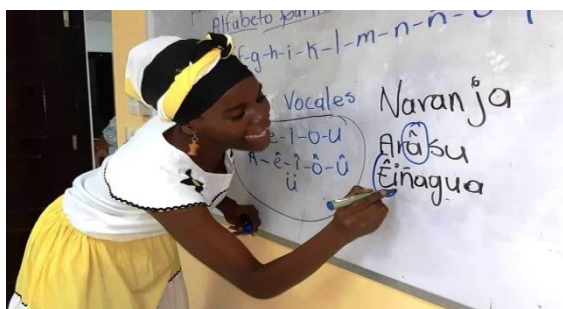 Alfabeto
f-g-h-i-k-l-m-n-ñ-
Vocales
e-i-o-u
A-ê-î-ô-û
ü
Naranja
Arâsu
Êiñagua